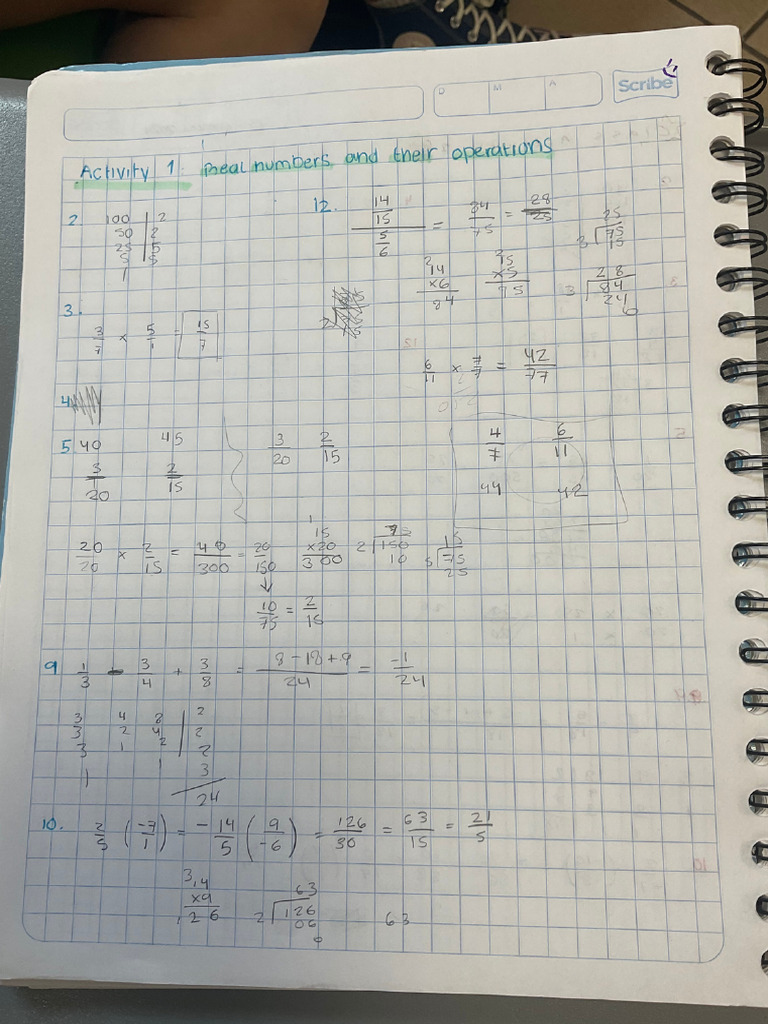 Scribe
D M A
Activity 1: Real numbers and their operations
2. 100 | 2
50 | 2
25 | 5
5 | 5
1
12. 14/15 / 5/6 = 84/75 = 28/25
14 x6 84
15 x5 75
25 3 75 15
28 3 84 24 0
3. 3/7 x 5/1 = 15/7
6/11 x 7/7 = 42/77
4.
5 40 45
3/20 2/15
3/20 2/15
4/7 6/11
44 42
20/20 x 2/15 = 40/300 = 20/150
15 x20 300
75 2 150 10
15 5 75 25
↓
10/75 = 2/15
9 1/3 - 3/4 + 3/8 = 8-18+9/24 = -1/24
3 4 8 | 2
3 2 4 | 2
3 1 2 | 2
1 1 3
24
10. 2/5 (-7/1) = -14/5 (9/-6) = 126/30 = 63/15 = 21/5
3,4 x9 126
63 2 126 06 0
63